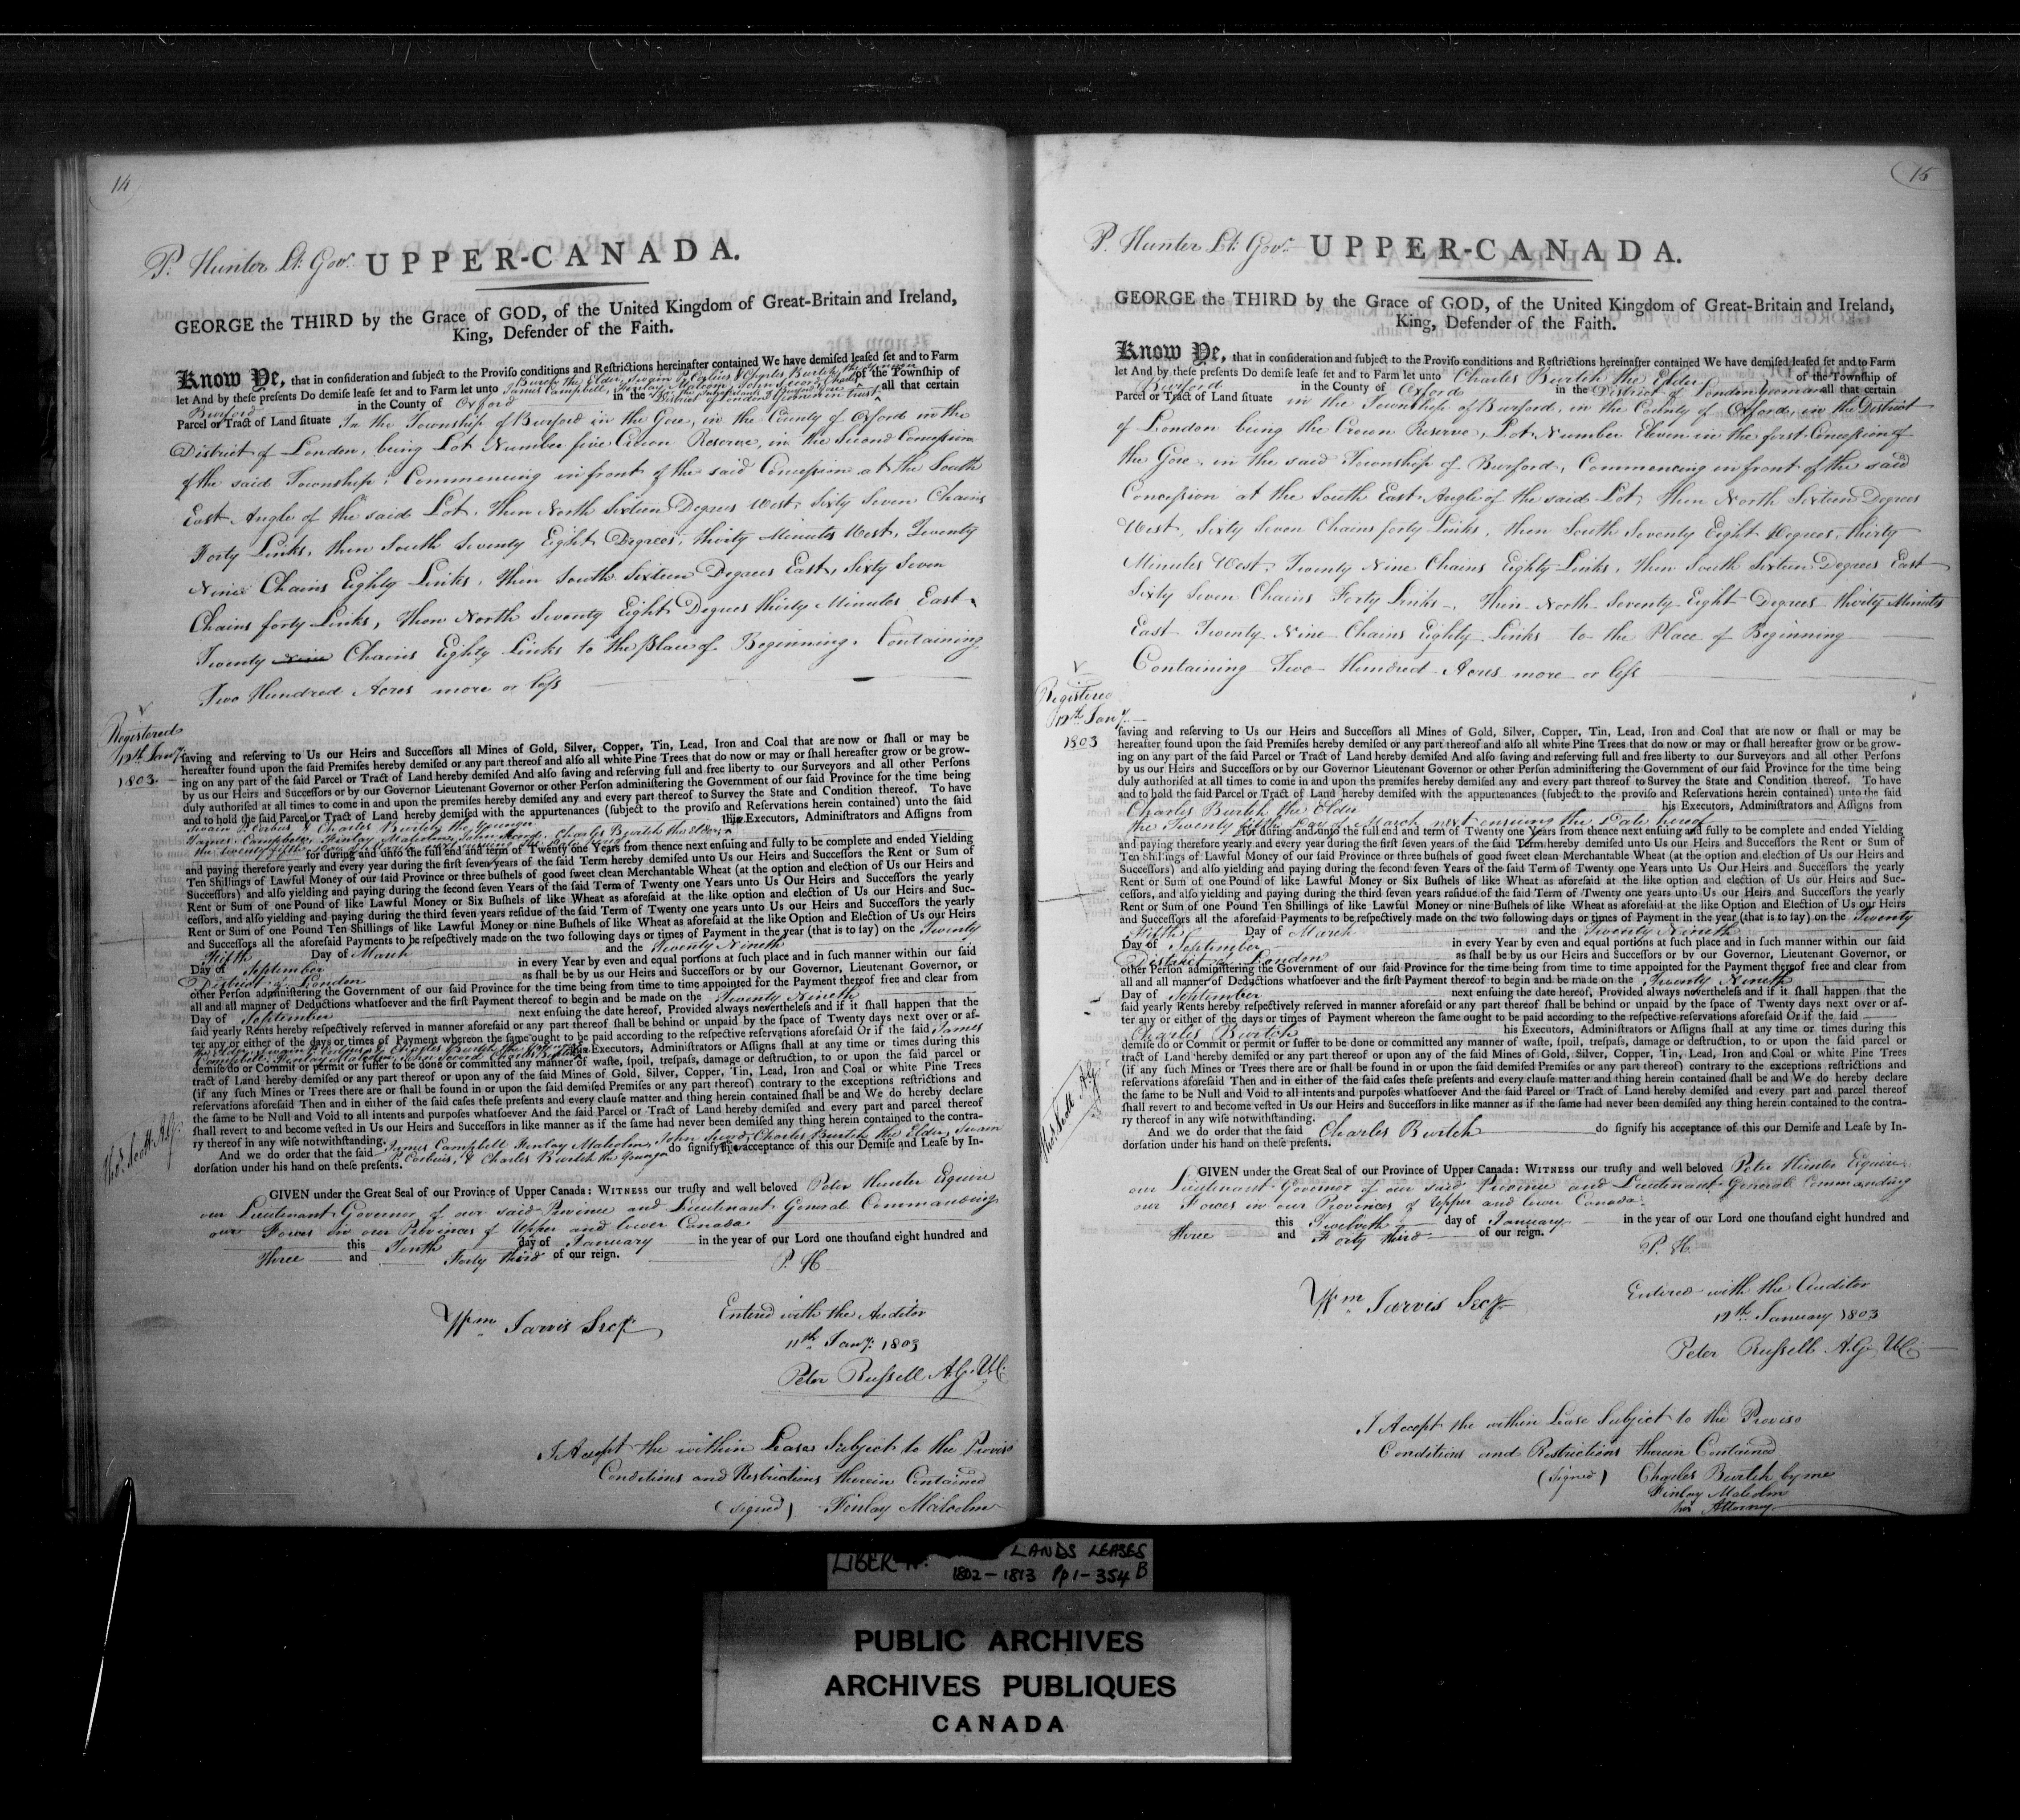 14
P. Hunter Lt. Gov.r UPPER-CANADA.
GEORGE the THIRD by the Grace of GOD, of the United Kingdom of Great-Britain and Ireland,
King, Defender of the Faith.
Know Ye, that in consideration and subject to the Proviso conditions and Restrictions hereinafter contained We have demised leased set and to Farm
let And by these presents Do demise lease set and to Farm let unto James Campbell, Finlay Malcolm, John Secord, Charles
Burtch the Elder, & Charles Burtch the Younger of the Township of
Burford in the County of Oxford in the District of London Yeomen in trust all that certain
Parcel or Tract of Land situate In the Township of Burford in the Gore, in the County of Oxford in the
District of London, being Lot Number five Crown Reserve, in the Second Concession
of the said Township: Commencing in front of the said Concession at the South
East Angle of the said Lot, then North Sixteen Degrees West, Sixty Seven Chains
Forty Links, then South Seventy Eight Degrees, thirty Minutes West, Twenty
Nine Chains Eighty Links, then South Sixteen Degrees East, Sixty Seven
Chains forty Links, then North Seventy Eight Degrees thirty Minutes East
Twenty Nine Chains Eighty Links to the Place of Beginning. Containing
Two Hundred Acres more or less
Registered
12th Jany.
1803
saving and reserving to Us our Heirs and Successors all Mines of Gold, Silver, Copper, Tin, Lead, Iron and Coal that are now or shall or may be
hereafter found upon the said Premises hereby demised or any part thereof and also all white Pine Trees that do now or may or shall hereafter grow or be grow-
ing on any part of the said Parcel or Tract of Land hereby demised And also saving and reserving full and free liberty to our Surveyors and all other Persons
by us our Heirs and Successors or by our Governor Lieutenant Governor or other Person administering the Government of our said Province for the time being
duly authorised at all times to come in and upon the premises hereby demised any and every part thereof to Survey the State and Condition thereof. To have
and to hold the said Parcel or Tract of Land hereby demised with the appurtenances (subject to the proviso and Reservations herein contained) unto the said
& Charles Burtch the Younger
James Campbell, Finlay Malcolm, John Secord, Charles Burtch the Elder, his Executors, Administrators and Assigns from
the Twenty fifth Day of March next ensuing the Date hereof
for during and unto the full end and term of Twenty one Years from thence next ensuing and fully to be complete and ended Yielding
and paying therefore yearly and every year during the first seven years of the said Term hereby demised unto Us our Heirs and Successors the Rent or Sum of
Ten Shillings of Lawful Money of our said Province or three bushels of good sweet clean Merchantable Wheat (at the option and election of Us our Heirs and
Successors) and also yielding and paying during the second seven Years of the said Term of Twenty one Years unto Us Our Heirs and Successors the yearly
Rent or Sum of one Pound of like Lawful Money or Six Bushels of like Wheat as aforesaid at the like option and election of Us our Heirs and Suc-
cessors, and also yielding and paying during the third seven years residue of the said Term of Twenty one years unto Us our Heirs and Successors the yearly
Rent or Sum of one Pound Ten Shillings of like Lawful Money or nine Bushels of like Wheat as aforesaid at the like Option and Election of Us our Heirs
and Successors all the aforesaid Payments to be respectively made on the two following days or times of Payment in the year (that is to say) on the Twenty
Fifth Day of March and the Twenty Nineth
Day of September in every Year by even and equal portions at such place and in such manner within our said
District of London as shall be by us our Heirs and Successors or by our Governor, Lieutenant Governor, or
other Person administering the Government of our said Province for the time being from time to time appointed for the Payment thereof free and clear from
all and all manner of Deductions whatsoever and the first Payment thereof to begin and be made on the Twenty Nineth
Day of September next ensuing the date hereof, Provided always nevertheless and if it shall happen that the
said yearly Rents hereby respectively reserved in manner aforesaid or any part thereof shall be behind or unpaid by the space of Twenty days next over or af-
ter any or either of the days or times of Payment whereon the same ought to be paid according to the respective reservations aforesaid Or if the said James
Campbell, Finlay Malcolm, John Secord, Charles Burtch
the Elder, & Charles Burtch the Younger his Executors, Administrators or Assigns shall at any time or times during this
demise do or Commit or permit or suffer to be done or committed any manner of waste, spoil, trespass, damage or destruction, to or upon the said parcel or
tract of Land hereby demised or any part thereof or upon any of the said Mines of Gold, Silver, Copper, Tin, Lead, Iron and Coal or white Pine Trees
(if any such Mines or Trees there are or shall be found in or upon the said demised Premises or any part thereof) contrary to the exceptions restrictions and
reservations aforesaid Then and in either of the said cases these presents and every clause matter and thing herein contained shall be and We do hereby declare
the same to be Null and Void to all intents and purposes whatsoever And the said Parcel or Tract of Land hereby demised and every part and parcel thereof
shall revert to and become vested in Us our Heirs and Successors in like manner as if the same had never been demised any thing herein contained to the contra-
ry thereof in any wise notwithstanding.
Thos. Scott A.G.
And we do order that the said James Campbell Finlay Malcolm, John Secord, Charles Burtch the Elder,
& Charles Burtch the Younger do signify his acceptance of this our Demise and Lease by In-
dorsation under his hand on these presents.
GIVEN under the Great Seal of our Province of Upper Canada: WITNESS our trusty and well beloved Peter Hunter Esquire
our Lieutenant Governor of our said Province and Lieutenant General Commanding
our Forces in our Provinces of Upper and lower Canada
this Tenth day of January in the year of our Lord one thousand eight hundred and
Three and Forty third of our reign.
P. H
Wm. Jarvis Secy.
Entered with the Auditor
11th Jany. 1803
Peter Russell A.G. U.C.
I Accept the within Lease Subject to the Proviso
Conditions and Restrictions therein Contained
(signed) Finlay Malcolm
15
P. Hunter Lt. Gov.r UPPER-CANADA.
GEORGE the THIRD by the Grace of GOD, of the United Kingdom of Great-Britain and Ireland,
King, Defender of the Faith.
Know Ye, that in consideration and subject to the Proviso conditions and Restrictions hereinafter contained We have demised leased set and to Farm
let And by these presents Do demise lease set and to Farm let unto Charles Burtch the Elder of the Township of
Burford in the County of Oxford in the District of London Yeoman all that certain
Parcel or Tract of Land situate in the Township of Burford, in the County of Oxford, in the District
of London being the Crown Reserve, Lot Number Eleven in the first Concession of
the Gore, in the said Township of Burford, Commencing in front of the said
Concession at the South East Angle of the said Lot, then North Sixteen Degrees
West, Sixty Seven Chains forty Links, then South Seventy Eight Degrees, thirty
Minutes West, Twenty Nine Chains Eighty Links, then South Sixteen Degrees East
Sixty Seven Chains Forty Links, then North Seventy Eight Degrees thirty Minutes
East Twenty Nine Chains Eighty Links to the Place of Beginning
Containing Two Hundred Acres more or less
Registered
12th Jany.
1803
saving and reserving to Us our Heirs and Successors all Mines of Gold, Silver, Copper, Tin, Lead, Iron and Coal that are now or shall or may be
hereafter found upon the said Premises hereby demised or any part thereof and also all white Pine Trees that do now or may or shall hereafter grow or be grow-
ing on any part of the said Parcel or Tract of Land hereby demised And also saving and reserving full and free liberty to our Surveyors and all other Persons
by us our Heirs and Successors or by our Governor Lieutenant Governor or other Person administering the Government of our said Province for the time being
duly authorised at all times to come in and upon the premises hereby demised any and every part thereof to Survey the State and Condition thereof. To have
and to hold the said Parcel or Tract of Land hereby demised with the appurtenances (subject to the proviso and Reservations herein contained) unto the said
Charles Burtch the Elder his Executors, Administrators and Assigns from
the Twenty fifth Day of March next ensuing the Date hereof
for during and unto the full end and term of Twenty one Years from thence next ensuing and fully to be complete and ended Yielding
and paying therefore yearly and every year during the first seven years of the said Term hereby demised unto Us our Heirs and Successors the Rent or Sum of
Ten Shillings of Lawful Money of our said Province or three bushels of good sweet clean Merchantable Wheat (at the option and election of Us our Heirs and
Successors) and also yielding and paying during the second seven Years of the said Term of Twenty one Years unto Us Our Heirs and Successors the yearly
Rent or Sum of one Pound of like Lawful Money or Six Bushels of like Wheat as aforesaid at the like option and election of Us our Heirs and Suc-
cessors, and also yielding and paying during the third seven years residue of the said Term of Twenty one years unto Us our Heirs and Successors the yearly
Rent or Sum of one Pound Ten Shillings of like Lawful Money or nine Bushels of like Wheat as aforesaid at the like Option and Election of Us our Heirs
and Successors all the aforesaid Payments to be respectively made on the two following days or times of Payment in the year (that is to say) on the Twenty
Fifth Day of March and the Twenty Nineth
Day of September in every Year by even and equal portions at such place and in such manner within our said
District of London as shall be by us our Heirs and Successors or by our Governor, Lieutenant Governor, or
other Person administering the Government of our said Province for the time being from time to time appointed for the Payment thereof free and clear from
all and all manner of Deductions whatsoever and the first Payment thereof to begin and be made on the Twenty Nineth
Day of September next ensuing the date hereof, Provided always nevertheless and if it shall happen that the
said yearly Rents hereby respectively reserved in manner aforesaid or any part thereof shall be behind or unpaid by the space of Twenty days next over or af-
ter any or either of the days or times of Payment whereon the same ought to be paid according to the respective reservations aforesaid Or if the said
Charles Burtch his Executors, Administrators or Assigns shall at any time or times during this
demise do or Commit or permit or suffer to be done or committed any manner of waste, spoil, trespass, damage or destruction, to or upon the said parcel or
tract of Land hereby demised or any part thereof or upon any of the said Mines of Gold, Silver, Copper, Tin, Lead, Iron and Coal or white Pine Trees
(if any such Mines or Trees there are or shall be found in or upon the said demised Premises or any part thereof) contrary to the exceptions restrictions and
reservations aforesaid Then and in either of the said cases these presents and every clause matter and thing herein contained shall be and We do hereby declare
the same to be Null and Void to all intents and purposes whatsoever And the said Parcel or Tract of Land hereby demised and every part and parcel thereof
shall revert to and become vested in Us our Heirs and Successors in like manner as if the same had never been demised any thing herein contained to the contra-
ry thereof in any wise notwithstanding.
Thos. Scott A.G.
And we do order that the said Charles Burtch do signify his acceptance of this our Demise and Lease by In-
dorsation under his hand on these presents.
GIVEN under the Great Seal of our Province of Upper Canada: WITNESS our trusty and well beloved Peter Hunter Esquire
our Lieutenant Governor of our said Province and Lieutenant General Commanding
our Forces in our Provinces of Upper and lower Canada
this Twelveth day of January in the year of our Lord one thousand eight hundred and
three and Forty third of our reign.
P. H.
Wm. Jarvis Secy.
Entered with the Auditor
12th January 1803
Peter Russell A.G. U.C.
I Accept the within Lease Subject to the Proviso
Conditions and Restrictions therein Contained
(signed) Charles Burtch by me
Finlay Malcolm
his Attorney
LIBER LANDS LEASES
1802-1813 Pp 1-354 B
PUBLIC ARCHIVES
ARCHIVES PUBLIQUES
CANADA